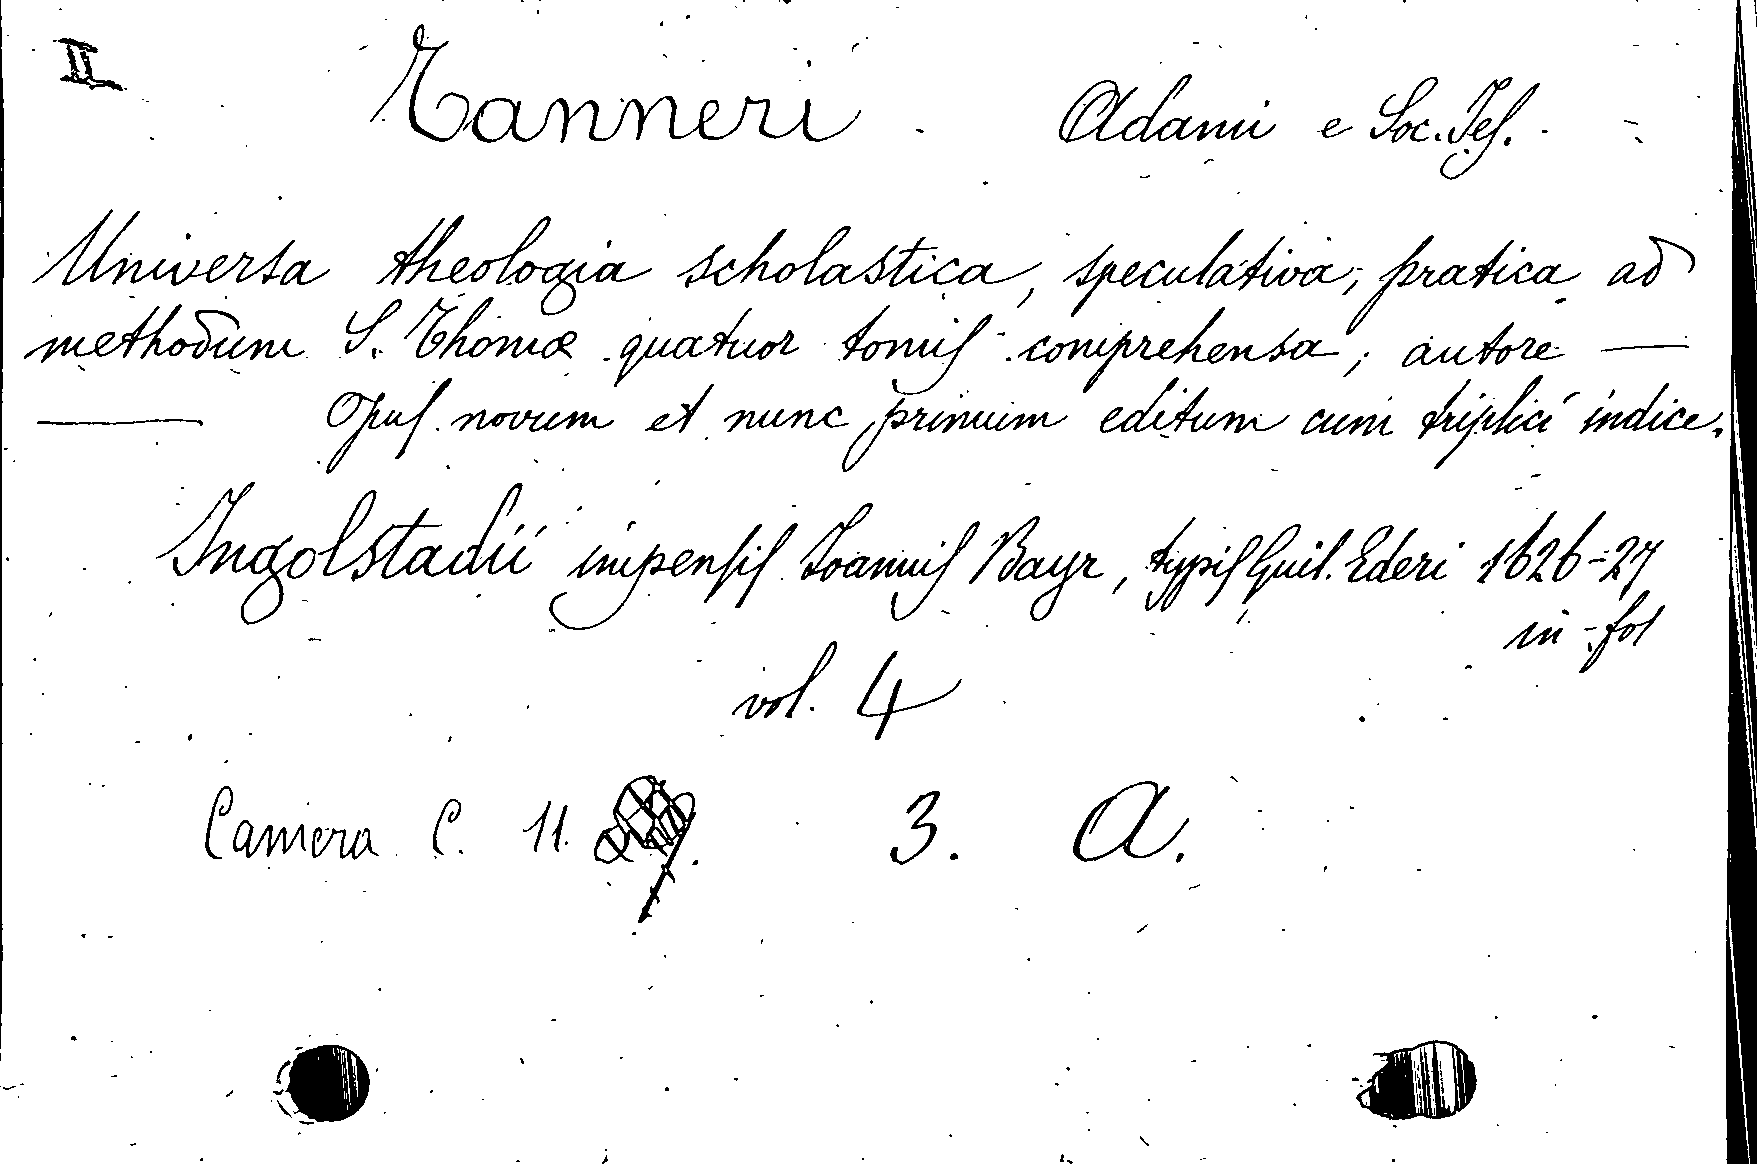 II
Tanneri Adami e Soc. Jes.
Universa theologia scholastica, speculativa, pratica ad
methodum S. Thomæ quatuor tomis comprehensa, autore —
— Opus novum et nunc primum editum cum triplici indice.
Ingolstadii impensis Joannis Bayr, typis Guil. Ederi 1626-27
in-fol
vol. 4
Camera C. 11. 3. A.